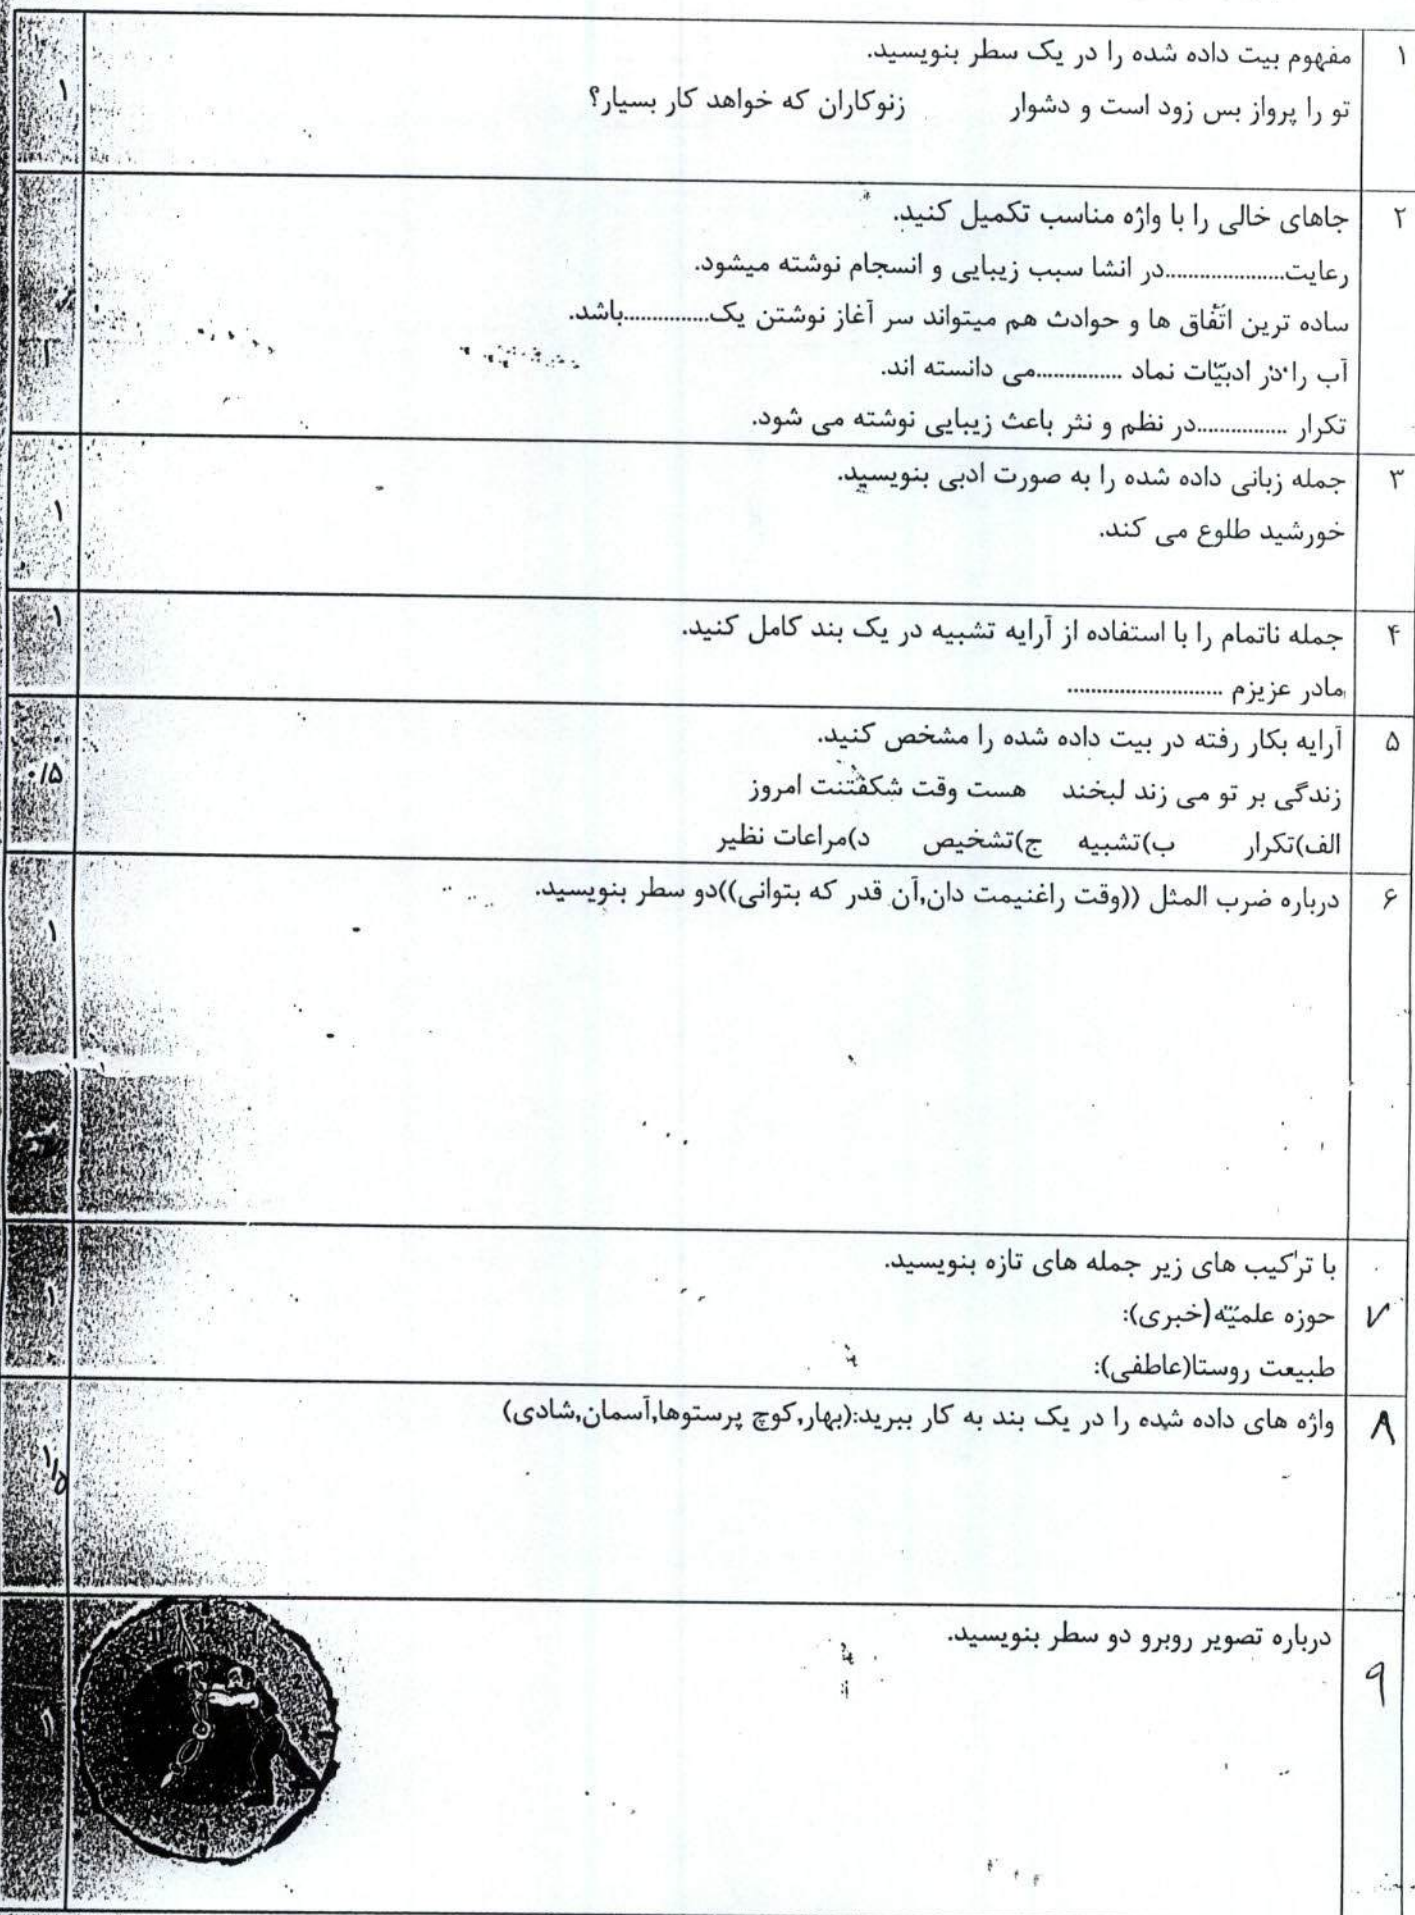 ۱ مفهوم بیت داده شده را در یک سطر بنویسید.
تو را پرواز بس زود است و دشوار زنوکاران که خواهد کار بسیار؟
۱
۲ جاهای خالی را با واژه مناسب تکمیل کنید.
رعایت....................در انشا سبب زیبایی و انسجام نوشته میشود.
ساده ترین اتّفاق ها و حوادث هم میتواند سر آغاز نوشتن یک...............باشد.
آب را در ادبیّات نماد ...............می دانسته اند.
تکرار ...............در نظم و نثر باعث زیبایی نوشته می شود.
۳ جمله زبانی داده شده را به صورت ادبی بنویسید.
خورشید طلوع می کند.
۱
۴ جمله ناتمام را با استفاده از آرایه تشبیه در یک بند کامل کنید.
مادر عزیزم ..........................
۱
۵ آرایه بکار رفته در بیت داده شده را مشخص کنید.
زندگی بر تو می زند لبخند هست وقت شکفتنت امروز
الف)تکرار ب)تشبیه ج)تشخیص د)مراعات نظیر
۰/۵
۶ درباره ضرب المثل ((وقت راغنیمت دان,آن قدر که بتوانی))دو سطر بنویسید.
۱
با ترکیب های زیر جمله های تازه بنویسید.
۷ حوزه علمیّه(خبری):
طبیعت روستا(عاطفی):
۱
۸ واژه های داده شده را در یک بند به کار ببرید:(بهار,کوچ پرستوها,آسمان,شادی)
۱/۵
درباره تصویر روبرو دو سطر بنویسید.
۹
۱